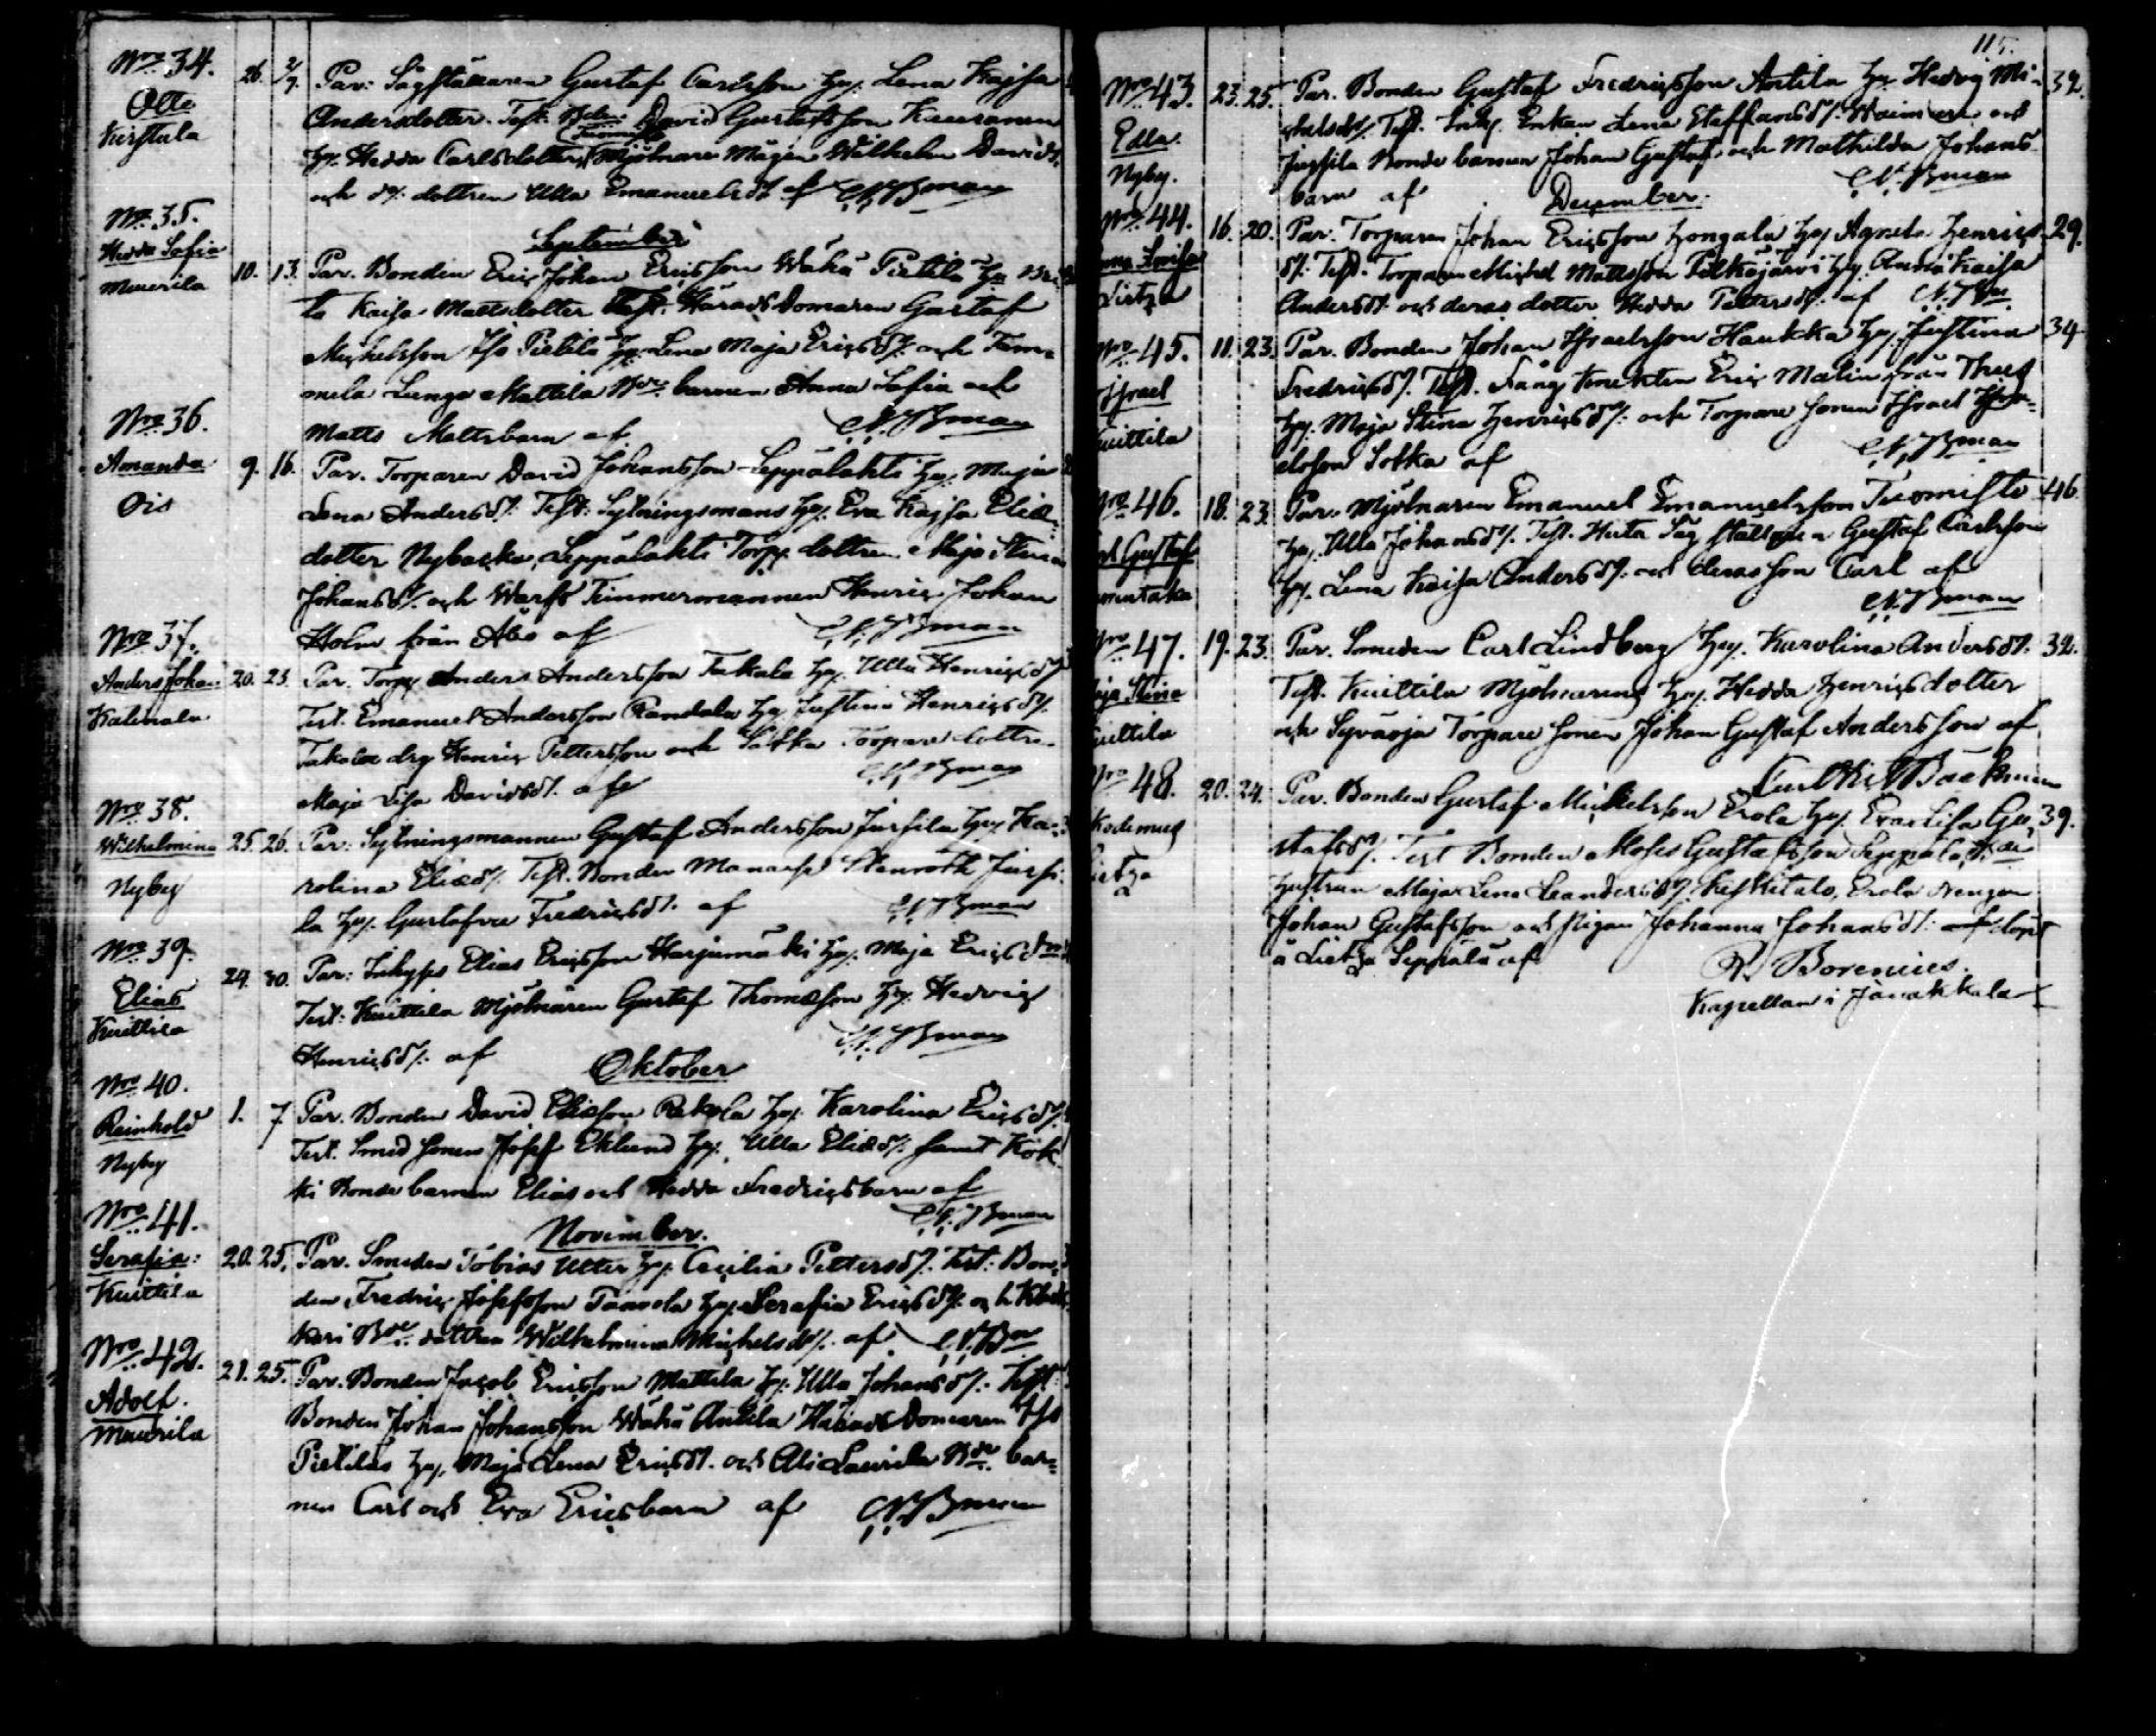 Nro 34.
Otto
Kirstula
26. 2/9. Par: Sågställaren Gustaf Carlsson hu. Lena Kajsa
Andersdotter. Test. David Gustafsson Kauranen
hu. Hedda Carlsdotter, Tuomisto Mjölnare Mågen Wilhelm Davids.
och dottren Ulla Emanuelsdr af C.N.Bman
September
Nro 35.
Hedda Sofia
Meurila
10. 13. Par. Bonden Eric Johan Ericsson Wähä Pietilä hu Bri-
ta Kaisa Mattsdotter Test. HäradsDomaren Gustaf
Michelsson Iso Pietilä hu. Lena Maja Ericsdr. och Tam-
mela Lunga Mattila Bde barnen Anna Sofia och
Matts Mattsbarn af C.N.Bman
Nro 36.
Amanda
Ois
9. 16. Par. Torparen David Johansson Leppälahti hu. Maja
Lena Andersdr. Test. Sytningsmans hu. Eva Kajsa Elias
dotter Nybacka, Leppälahti Torp. dottren Maja Stina
Johansdr. och Warfs Timmermannen Henric Johan
Holm från Åbo af C.N.Bman
Nro 37.
Anders Johan
Kalimala
20. 23. Par. Torp. Anders Andersson Takala hu. Ulla Henricsdr
Test. Emanuel Andersson Randala hu Justina Henricsdr.
Takala drg Henric Pettersson och Torpare dottren
Maja Lisa Davidsdr. af C.N.Bman
Nro 38.
Wilhelmina
Nyby
25. 26. Par: Sytningsmannen Gustaf Andersson Jussila hu. Ka-
rolina Eliasdr. Test. Bonden Manasse Stenroth Jussi-
la hu. Gustafva Fredricsdr. af C.N.Bman
Nro 39.
Elias
Kuittila
24. 30. Par: Inhyses Elias Ericsson Harjumäki hu. Maja Ericsdr
Test: Kuittila Mjölnaren Gustaf Thomasson hu. Hedvig
Henricsdr. af C.N.Bman
Oktober
Nro 40.
Reinhold
Nyby
1. 7. Par. Bonden David Eliasson Rekola hu. Karolina Ericsdr.
Test. Smed sonen Josef Eklund hu. Ulla Eliasdr. samt Kök-
ki Bonde barnen Elias och Hedda Fredricsbarn af
C.N.Bman
November.
Nro 41.
Serafia:
Kuittila
20. 25. Par. Smeden Tobias Utter hu. Cecilia Pettersdr. Test: Bon-
den Fredric Josefsson Taavola hu. Serafia Ericsdr. och
kari Bde dottren Wilhelmina Michelsdr. af C.N.Bm
Nro 42.
Adolf.
Meurila
21. 25. Par. Bonden Jacob Ericsson Mattila hu. Ulla Johansdr. Test:
Bonden Johan Johansson Wähä Anttila HäradsDomaren Iso
Pietiläs hu. Maja Lena Ericsdr. och Ali Laurila Bde bar-
nen Carl och Eva Ericsbarn af C.N.Bman
115.
Nro 43.
Edla.
Nyby.
23. 25. Par. Bonden Gustaf Fredricsson Antila hu Hedvig Mi- 32.
chelsdr. Test. Inh. Enkan Lena Staffansdr. och
Jussila Bonde barnen Johan Gustaf och Mathilda Johans
barn af C.N.Bman
December.
Nro 44.
Lovisa
Lietza
16. 20. Par. Torparen Johan Ericsson Hongala hu Agneta Henrics- 29.
dr: Test. Torparen Michel Mattsson Pilkäjärvi hu. Anna Kaisa
Andersdr. och deras dotter Hedda Pettersdr. af C.N.Bm
Nro 45.
Israel
Kuittila
11. 23. Par. Bonden Johan Israelsson Haukka hu. Justina 34
Fredricsdr. Test. Fång knekten Eric Malin från
hu. Maja Stina Henricsdr. och Torpare sonen Israel Isra-
elsson Sotka af C.N.Bman
Nro 46.
Gustaf
18. 23. Par. Mjölnaren Emanuel Emanuelsson Tuomisto 46.
hu. Ulla Johansdr. Test. Såg ställaren Gustaf Carlsson
hu. Lena Kaisa Andersdr. och deras son Carl af
C.N.Bman
Nro 47.
Maja Stina
Kuittila
19. 23. Par. Smeden Carl Lindberg hu. Karolina Andersdr. 32.
Test. Kuittila Mjölnarens hu. Hedda Henricsdotter
och Syväoja Torpare sonen Johan Gustaf Andersson af
Backman
Nro 48.
Nikodemus
Lietza
20. 24. Par. Bonden Gustaf Michelsson Erola hu. Eva Lisa Gu- 39.
stafsdr. Test Bonden Moses Gustafsson Seppälä,
hustrun Maja Lena Leandersdr. Keskitalo, Erola drengen
Johan Gustafsson och Pigan Johanna Johansdr: döpt
i Lietza Seppälä af
R. Borenius.
Kapellan i Janakkala